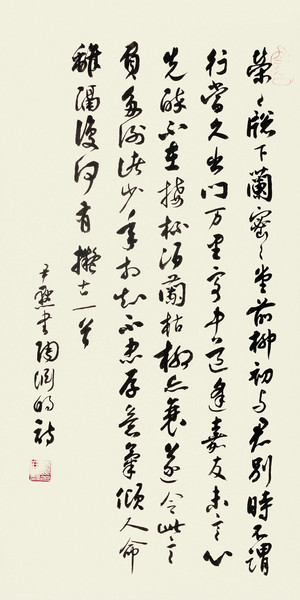 榮〻牕下蘭密〻堂前柳初与君別時不謂
行當久出門万里客中道逢嘉友未言心
先醉不在接杯酒蘭枯柳亦衰遂令此言
負多謝諸少年相知不忠厚意氣傾人命
離隔復何有擬古一首
尹默書陶淵明詩